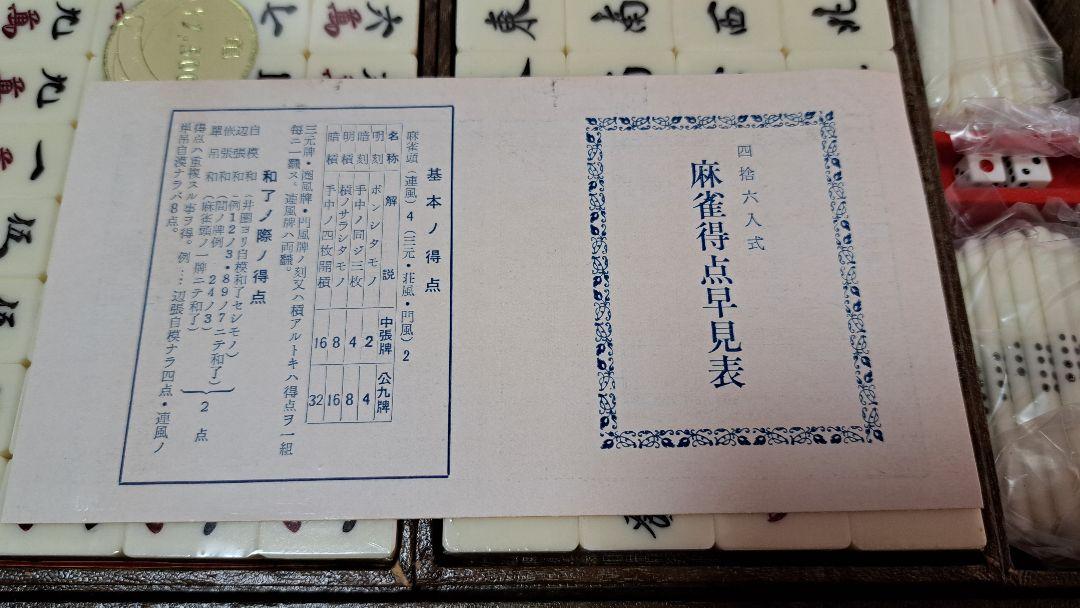 四捨六入式
麻雀得点早見表
基本ノ得点
麻雀頭(連風)4(三元・荘風・門風)2
名称 解説 中張牌 公九牌
明刻 ポンシタモノ 2 4
暗刻 手中ノ同ジ三枚 4 8
明槓 槓ノサラシタモノ 8 16
暗槓 手中ノ四枚開槓 16 32
三元牌・圏風牌・門風牌ノ刻又ハ槓アルトキハ得点ヲ一組
毎ニ一翻ス。連風牌ハ両翻。
和了ノ際ノ得点
自模和(井圏ヨリ自模和了セシモノ)
辺張和(例12ノ3・89ノ7ニテ和了)
嵌張和(間ノ牌例 24ノ3)
単吊和(麻雀頭ノ一牌ニテ和了)
2点
得点ハ重複スル事ヲ得。例…辺張自模ナラ四点・連風ノ
単吊自模ナラバ8点。
東 南 西 北
六萬
九萬
九萬
一
伍